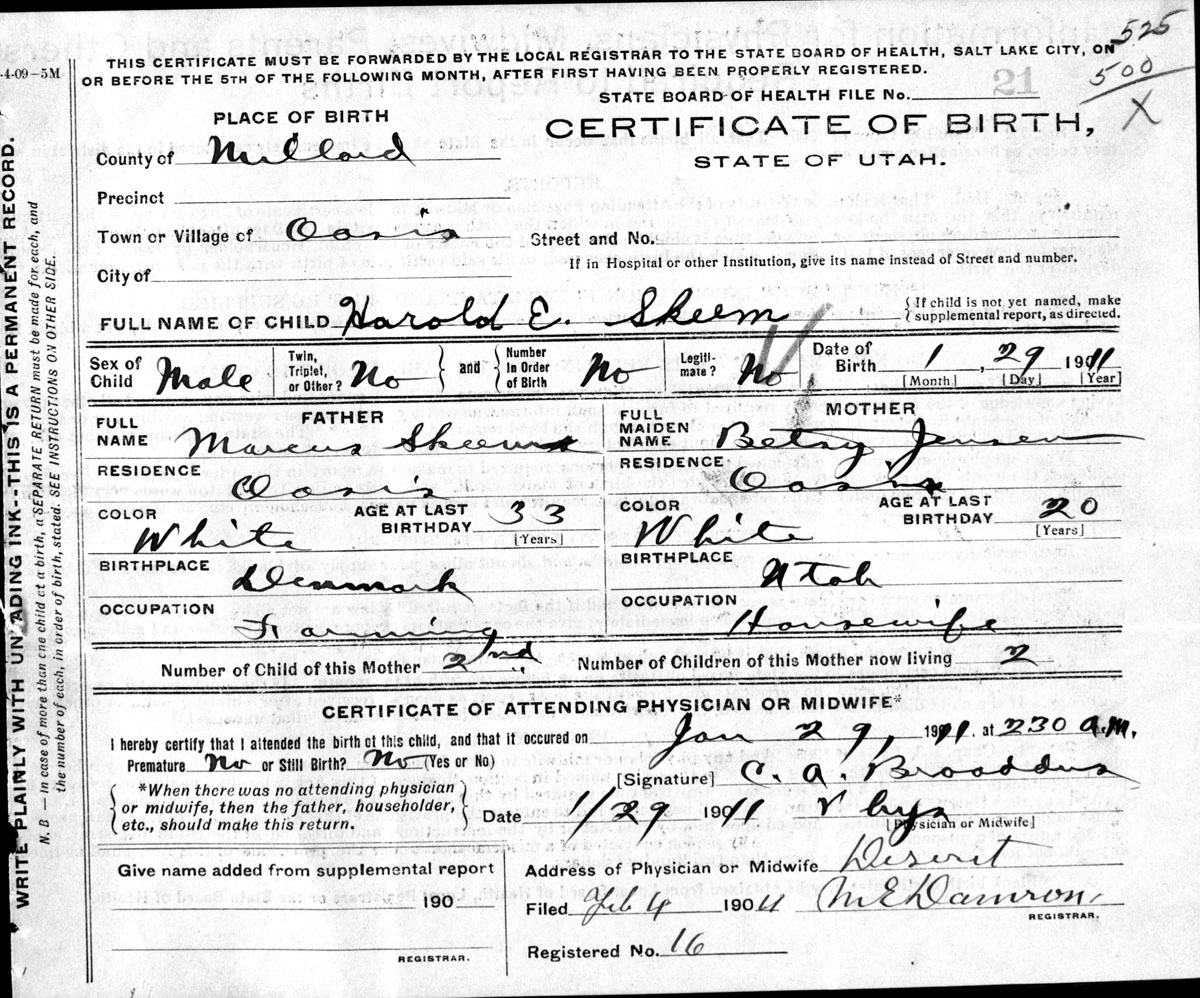 525
500
X
4-09-5M
THIS CERTIFICATE MUST BE FORWARDED BY THE LOCAL REGISTRAR TO THE STATE BOARD OF HEALTH, SALT LAKE CITY, ON
OR BEFORE THE 5TH OF THE FOLLOWING MONTH, AFTER FIRST HAVING BEEN PROPERLY REGISTERED.
21
STATE BOARD OF HEALTH FILE No.
PLACE OF BIRTH
CERTIFICATE OF BIRTH,
STATE OF UTAH.
County of Millard
Precinct
Town or Village of Oasis Street and No.
City of If in Hospital or other Institution, give its name instead of Street and number.
FULL NAME OF CHILD Harold E. Skeem {If child is not yet named, make
supplemental report, as directed.
Sex of Child Male Twin, Triplet, or Other? No and Number in Order of Birth No Legiti-mate? No Date of Birth 1, 29 1911
[Month] [Day] [Year]
FATHER MOTHER
FULL NAME Marcus Skeem FULL MAIDEN NAME Betsy Jensen
RESIDENCE Oasis RESIDENCE Oasis
COLOR White AGE AT LAST BIRTHDAY 33 [Years] COLOR White AGE AT LAST BIRTHDAY 20 [Years]
BIRTHPLACE Denmark BIRTHPLACE Utah
OCCUPATION Farming OCCUPATION Housewife
Number of Child of this Mother 2nd Number of Children of this Mother now living 2
CERTIFICATE OF ATTENDING PHYSICIAN OR MIDWIFE*
I hereby certify that I attended the birth of this child, and that it occured on Jan 29, 1911. at 230 a.m.
Premature No or Still Birth? No (Yes or No)
[Signature] C. A. Broaddus
*When there was no attending physician
or midwife, then the father, householder,
etc., should make this return.
Date 1/29 1911 Phys
[Physician or Midwife]
Give name added from supplemental report
Address of Physician or Midwife Deseret
190
Filed Feb 4 1911 M E Damron,
REGISTRAR.
Registered No. 16
REGISTRAR.
WRITE PLAINLY WITH UNFADING INK-THIS IS A PERMANENT RECORD.
N. B — In case of more than one child at a birth, a SEPARATE RETURN must be made for each, and
the number of each, in order of birth, stated. SEE INSTRUCTIONS ON OTHER SIDE.